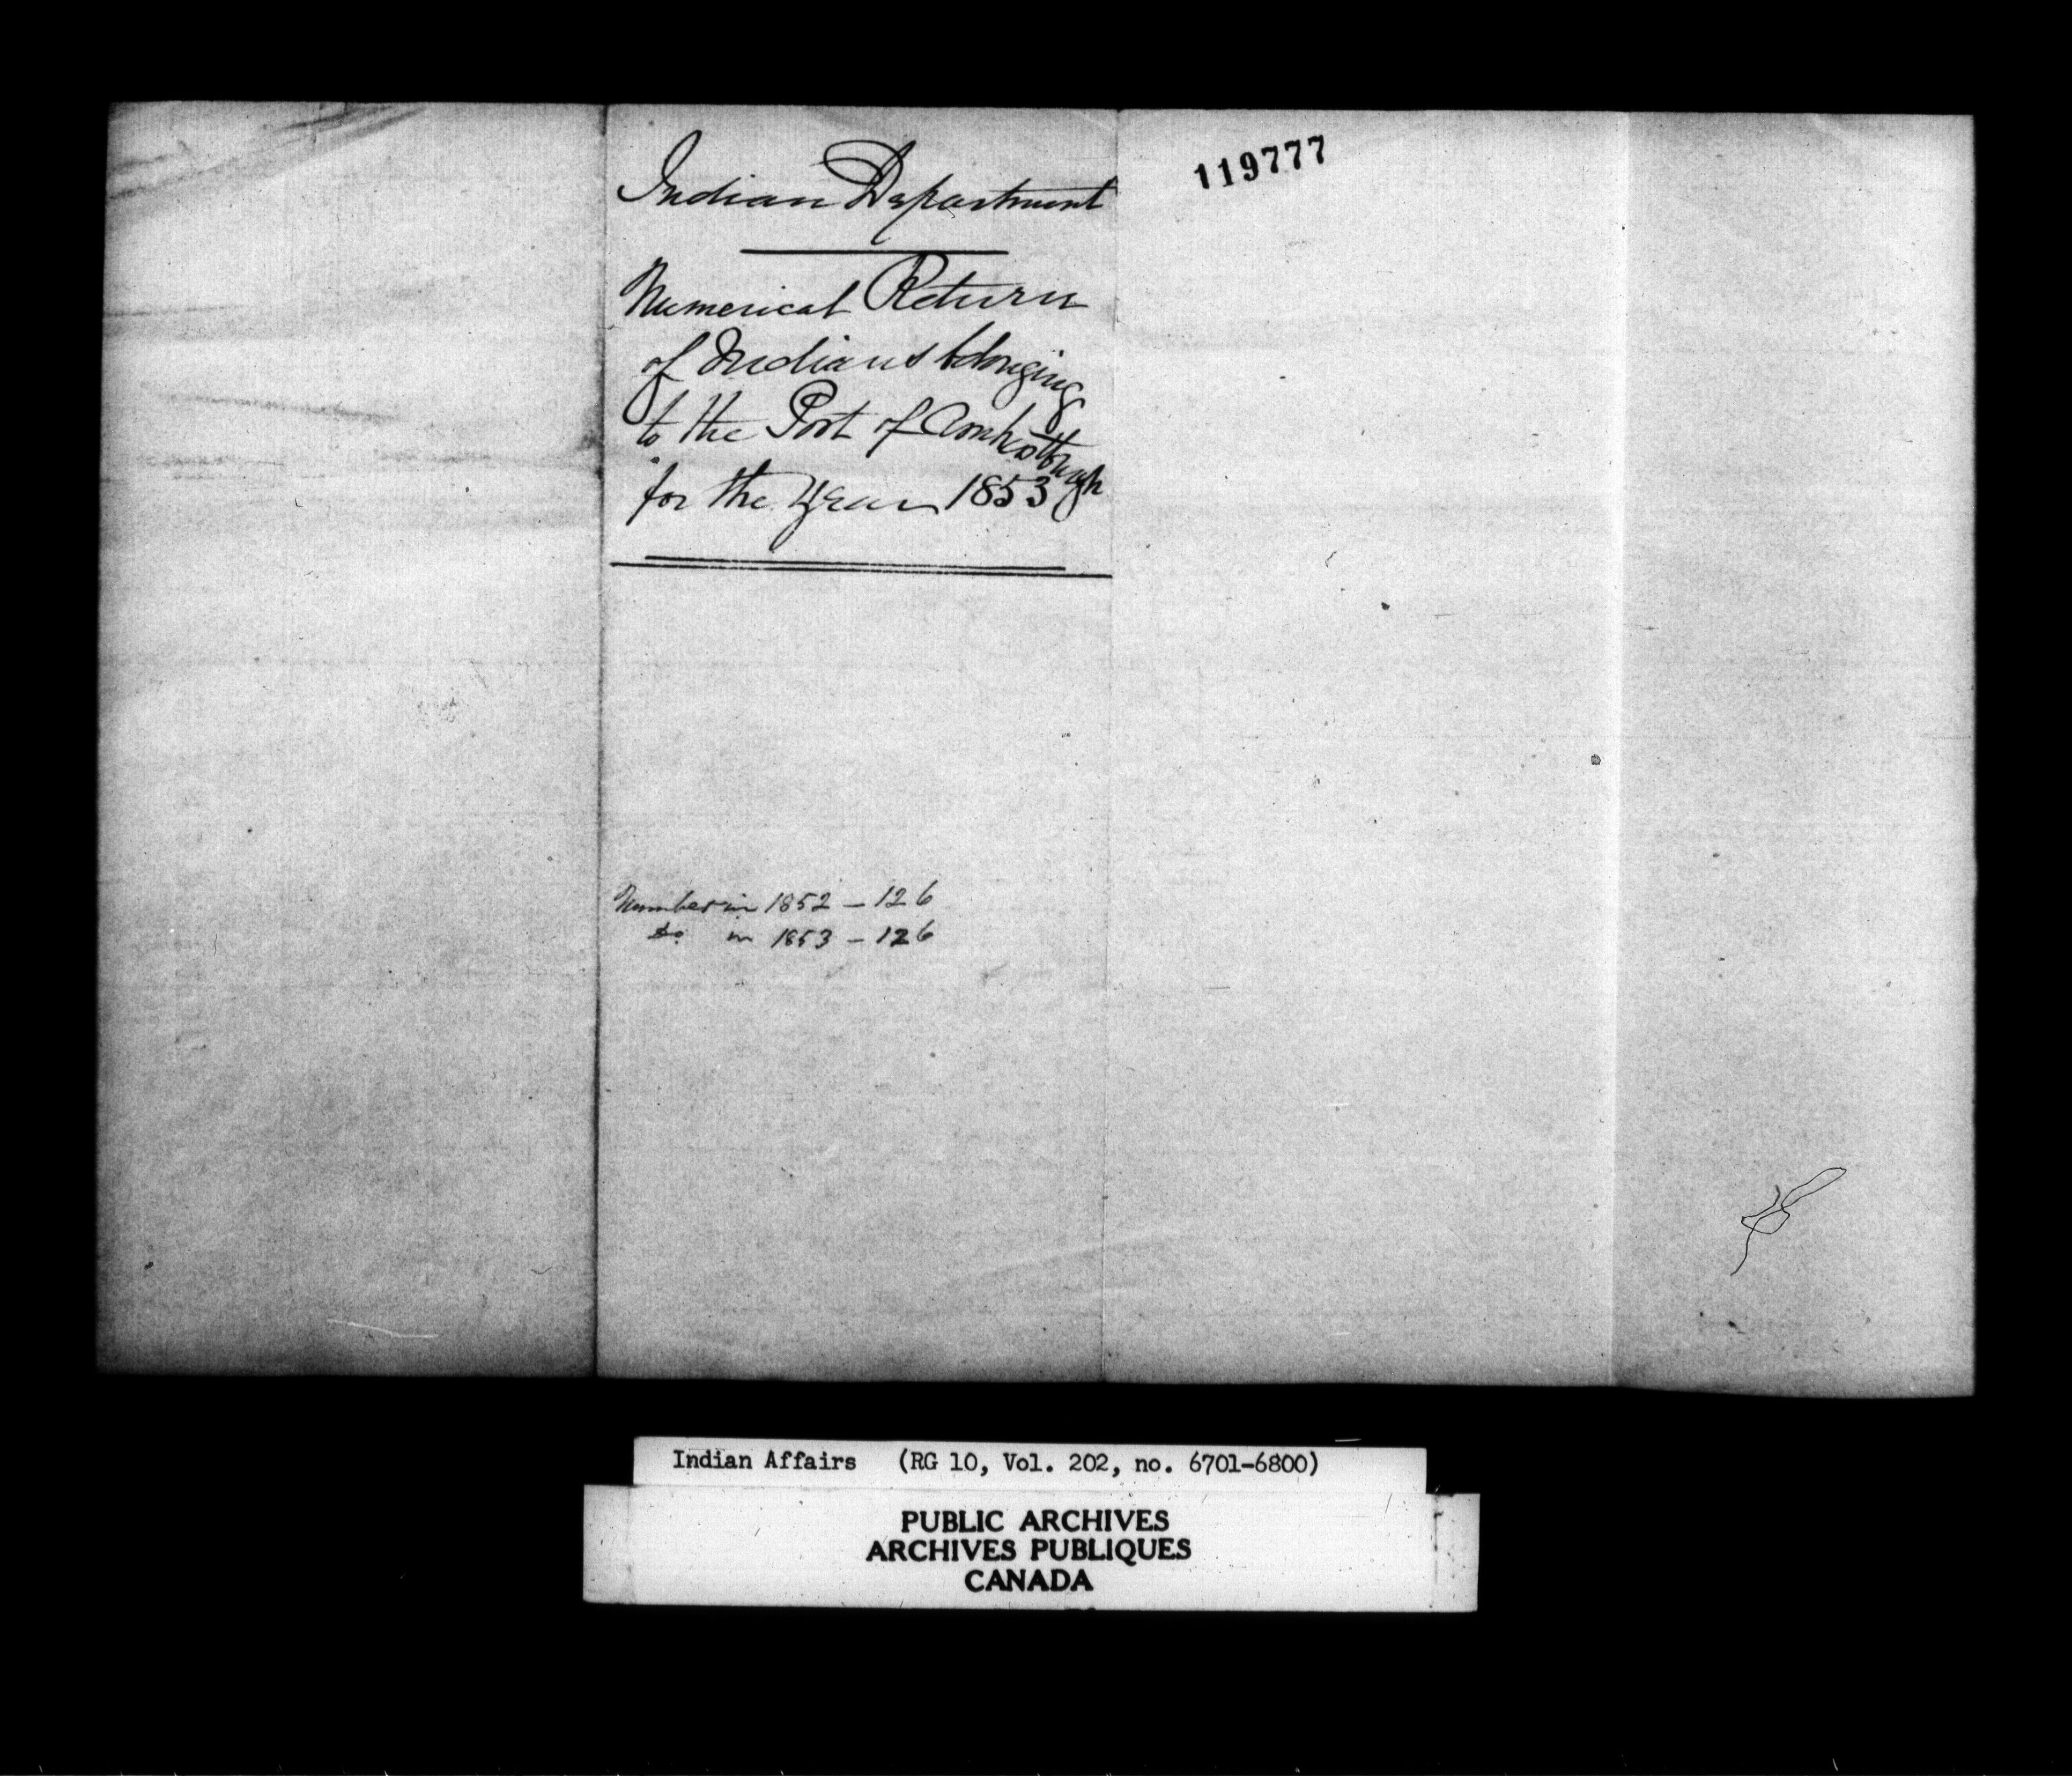 Indian Department
Numerical Return
of Indians belonging
to the Post of Amherstburgh
for the Year 1853
119777
Number in 1852 – 126
Do in 1853 – 126
Indian Affairs (RG 10, Vol. 202, no. 6701-6800)
PUBLIC ARCHIVES
ARCHIVES PUBLIQUES
CANADA